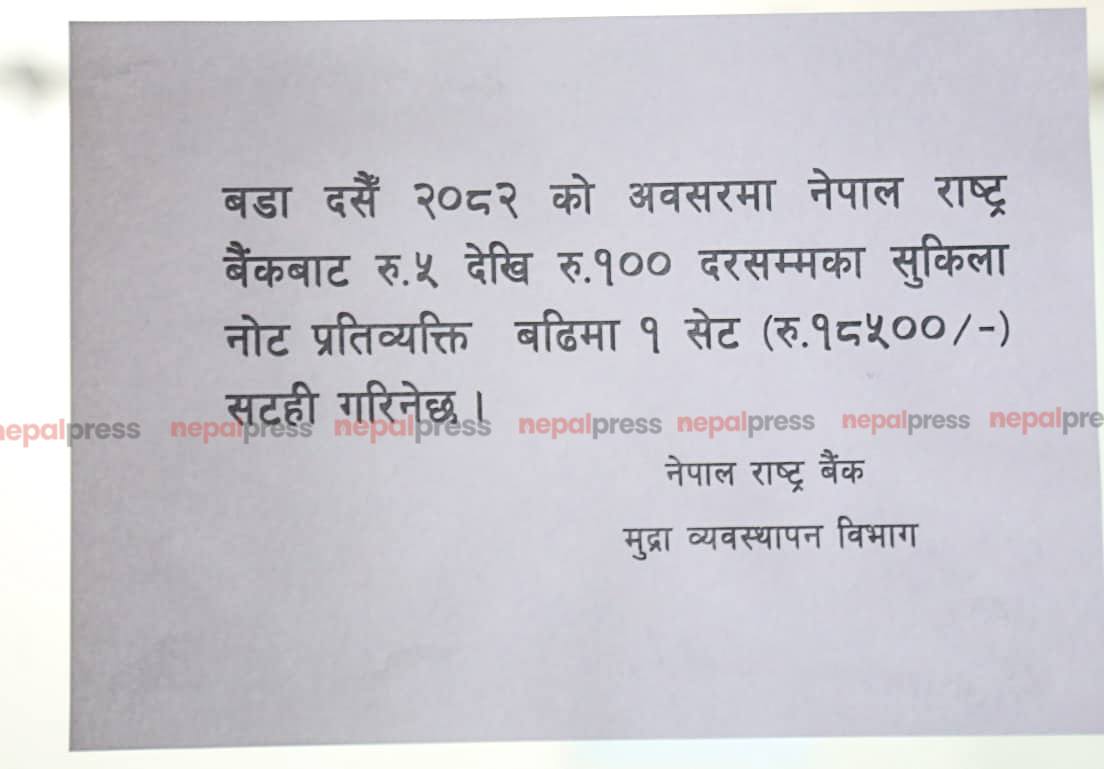 बडा दसैँ २०८२ को अवसरमा नेपाल राष्ट्र
बैंकबाट रु.५ देखि रु.१०० दरसम्मका सुकिला
नोट प्रतिव्यक्ति बढिमा १ सेट (रु.१८५००/-)
सटही गरिनेछ ।
nepalpress nepalpress nepalpress nepalpress nepalpress nepalpress nepalpre
नेपाल राष्ट्र बैंक
मुद्रा व्यवस्थापन विभाग